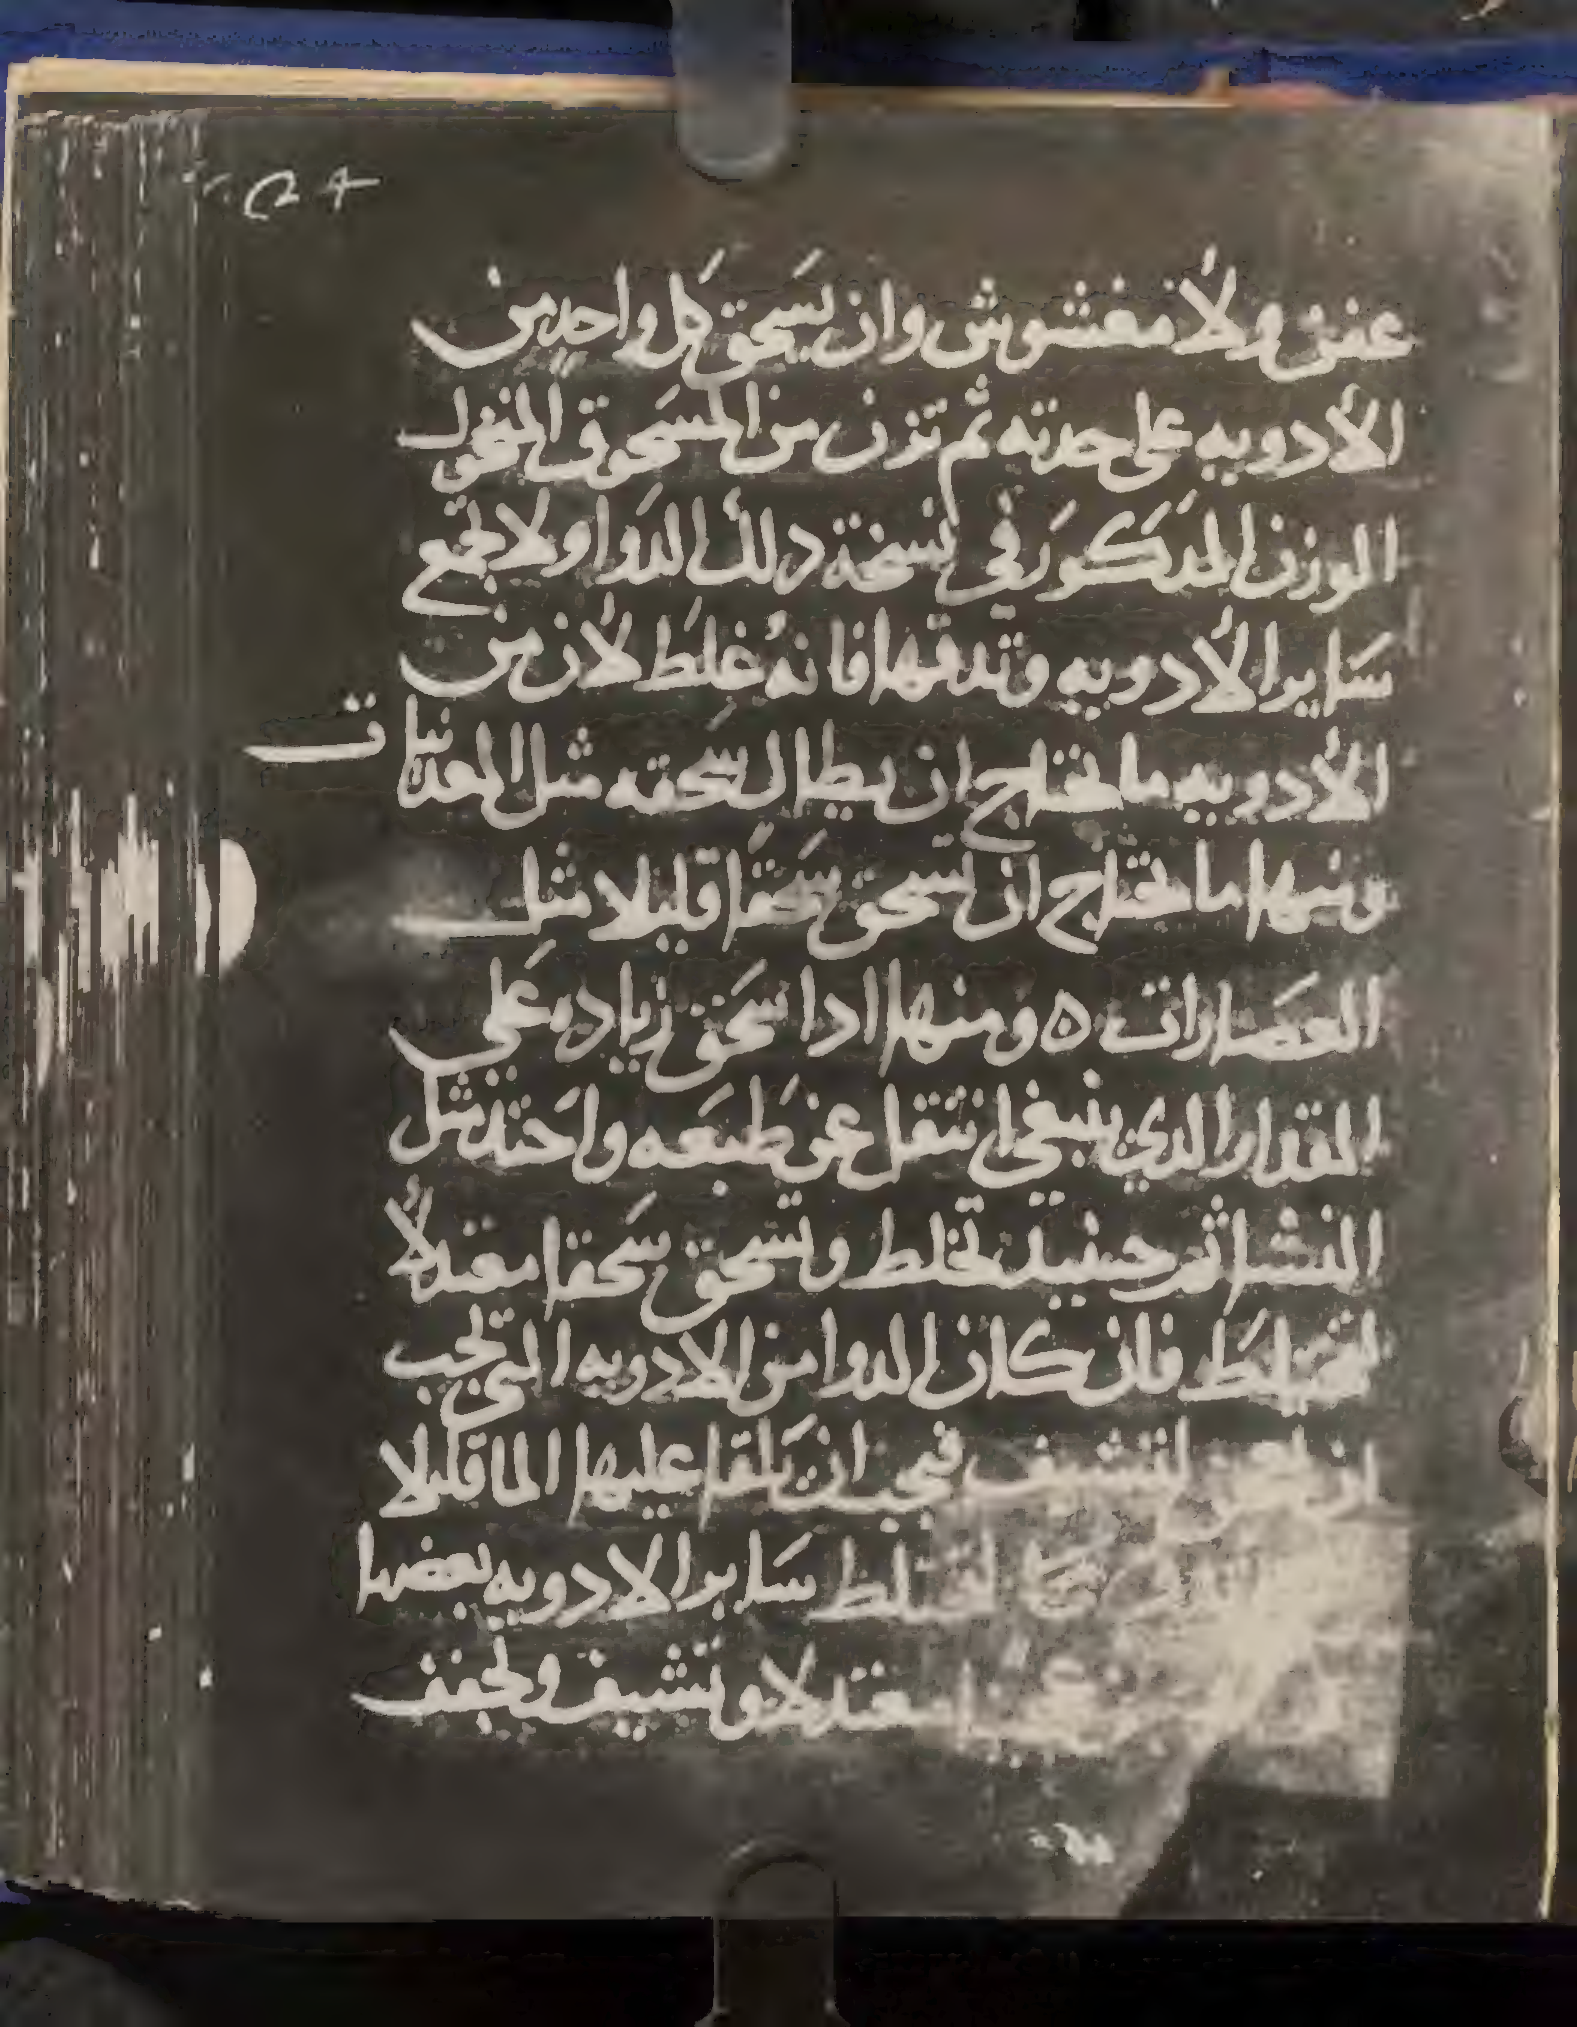 عفن ولا مغشوش وان يسحق كل واحد من
الأدويه على حدته ثم تزن من المسحوق المنخول
الوزن المذكور في نسخة دلك الدوا ولا تجمع
ساير الأدويه وتدقها فانه غلط لأن من
الأدويه ما تحتاج ان يطال سحقه مثل المعدنيات
ومنها ما تحتاج ان تسحق سحقا قليلا مثل
العصارات ٥ ومنها ادا سحق زياده على
المقدار الدي ينبغي انتقل عن طبعه واحتد مثل
النشا ثم حينيد تخلط وتسحق سحقا معتدلاً
لتختلط فان كان الدوا من الادويه التي تجب
ان تعجن لتشيف فيجب ان يلقا عليها الما قليلا
لتختلط ساير الادويه بعضها
عجنا معتدلا وتشيف وتجفف